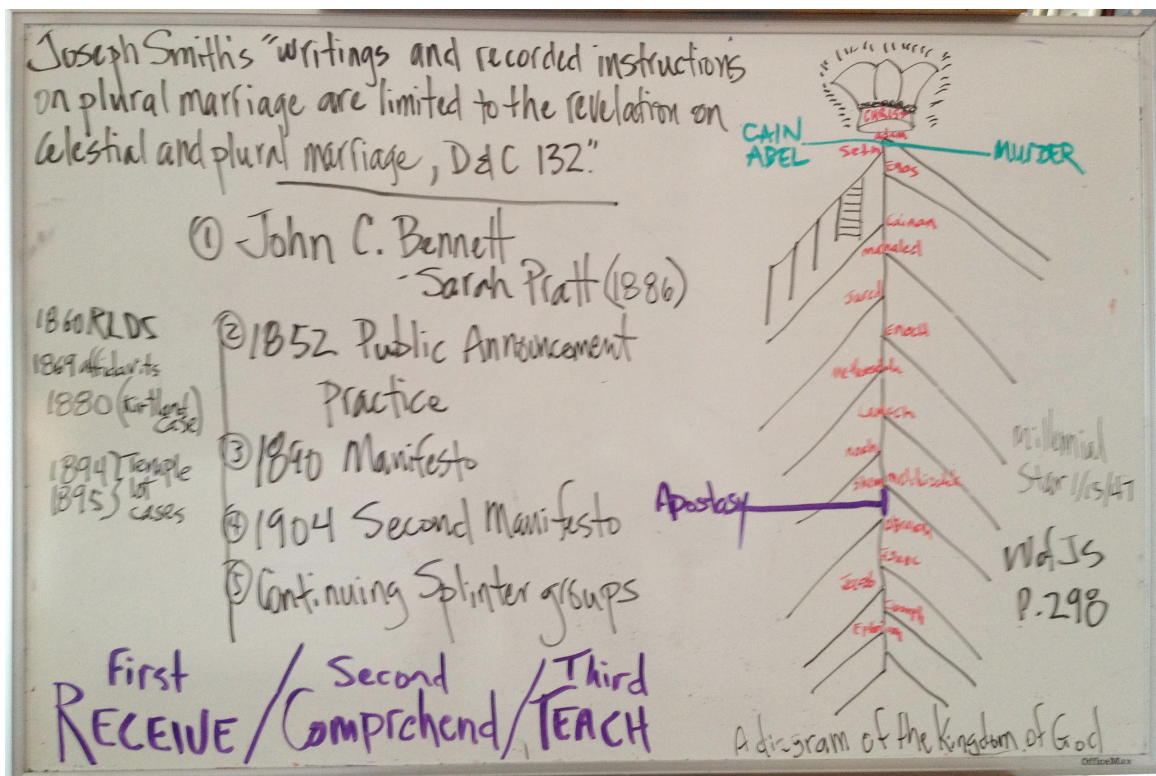 Joseph Smith's "writings and recorded instructions
on plural marriage are limited to the revelation on
Celestial and plural marriage, D&C 132."
① John C. Bennett
- Sarah Pratt (1886)
② 1852 Public Announcement
Practice
③ 1890 Manifesto
④ 1904 Second Manifesto
⑤ Continuing Splinter groups
1860 RLDS
1869 affidavits
1880 (Kirtland
Case)
1894 } Temple
1895 } Lot
cases
First / Second / Third
RECEIVE / Comprehend / TEACH
CHRIST
Adam
CAIN
ABEL
MURDER
Seth
Enos
Cainan
Jared
Enoch
Lamech
Noah
Shem
Apostasy
Isaac
Jacob
Joseph
Millennial
Star 1/15/47
WofJS
P. 298
A diagram of the Kingdom of God
OfficeMax